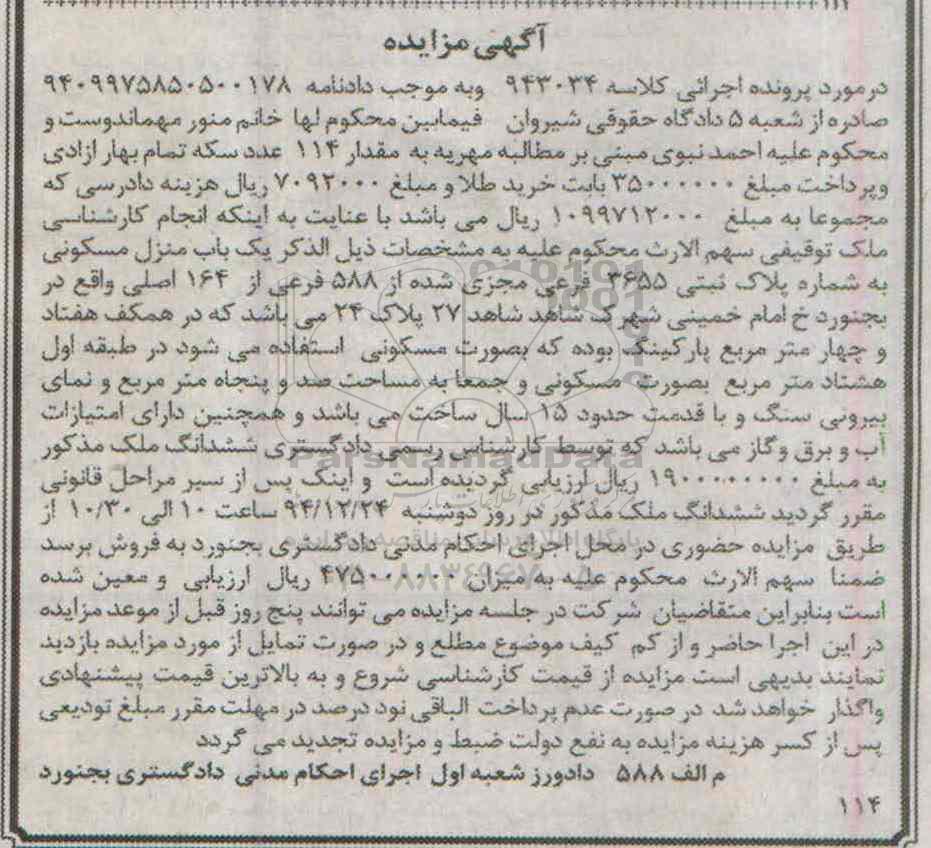 ۱۱۴
آگهی مزایده
درمورد پرونده اجرائی کلاسه ۹۴۳۰۳۴ وبه موجب دادنامه ۹۴۰۹۹۷۵۸۵۰۵۰۰۱۷۸
صادره از شعبه ۵ دادگاه حقوقی شیروان فیمابین محکوم لها خانم منور مهماندوست و
محکوم علیه احمد نبوی مبنی بر مطالبه مهریه به مقدار ۱۱۴ عدد سکه تمام بهار ازادی
وپرداخت مبلغ ۳۵۰۰۰۰۰۰ بابت خرید طلا و مبلغ ۷۰۹۲۰۰۰ ریال هزینه دادرسی که
مجموعا به مبلغ ۱۰۹۹۷۱۲۰۰۰ ریال می باشد با عنایت به اینکه انجام کارشناسی
ملک توقیفی سهم الارث محکوم علیه به مشخصات ذیل الذکر یک باب منزل مسکونی
به شماره پلاک ثبتی ۳۶۵۵ فرعی مجزی شده از ۵۸۸ فرعی از ۱۶۴ اصلی واقع در
بجنورد خ امام خمینی شهرک شاهد شاهد ۲۷ پلاک ۲۴ می باشد که در همکف هفتاد
و چهار متر مربع پارکینگ بوده که بصورت مسکونی استفاده می شود در طبقه اول
هشتاد متر مربع بصورت مسکونی و جمعا به مساحت صد و پنجاه متر مربع و نمای
بیرونی سنگ و با قدمت حدود ۱۵ سال ساخت می باشد و همچنین دارای امتیازات
آب و برق وگاز می باشد که توسط کارشناس رسمی دادگستری ششدانگ ملک مذکور
به مبلغ ۱۹۰۰۰۰۰۰۰۰ ریال ارزیابی گردیده است و اینک پس از سیر مراحل قانونی
مقرر گردید ششدانگ ملک مذکور در روز دوشنبه ۹۴/۱۲/۲۴ ساعت ۱۰ الی ۱۰/۳۰ از
طریق مزایده حضوری در محل اجرای احکام مدنی دادگستری بجنورد به فروش برسد
ضمنا سهم الارث محکوم علیه به میزان ریال ارزیابی و معین شده
است بنابراین متقاضیان شرکت در جلسه مزایده می توانند پنج روز قبل از موعد مزایده
در این اجرا حاضر و از کم کیف موضوع مطلع و در صورت تمایل از مورد مزایده بازدید
نمایند بدیهی است مزایده از قیمت کارشناسی شروع و به بالاترین قیمت پیشنهادی
واگذار خواهد شد در صورت عدم پرداخت الباقی نود درصد در مهلت مقرر مبلغ تودیعی
پس از کسر هزینه مزایده به نفع دولت ضبط و مزایده تجدید می گردد
م الف ۵۸۸ دادورز شعبه اول اجرای احکام مدنی دادگستری بجنورد
۱۱۴
ParsNamadData